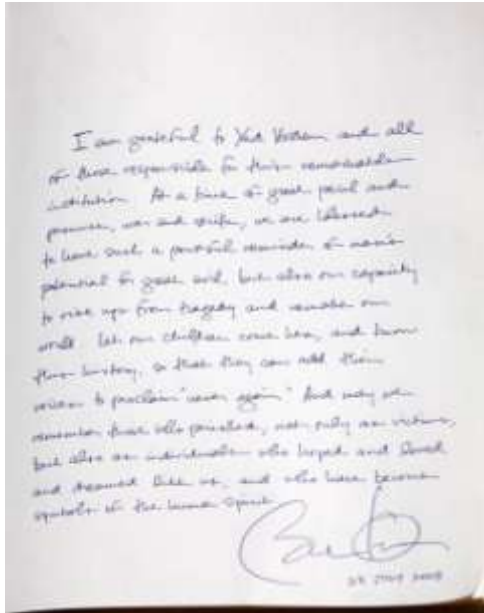 I am grateful to Yad Vashem and all
of those responsible for this remarkable
institution. At a time of great peril and
promise, war and strife, we are blessed
to have such a powerful reminder of man's
potential for great evil, but also our capacity
to rise up from tragedy and remake our
world. Let our children come here, and know
this history, so that they can add their
voices to proclaim "never again." And may we
remember those who perished, not only as victims,
but also as individuals who hoped and loved
and dreamed like us, and who have become
symbols of the human spirit.
23 July 2008